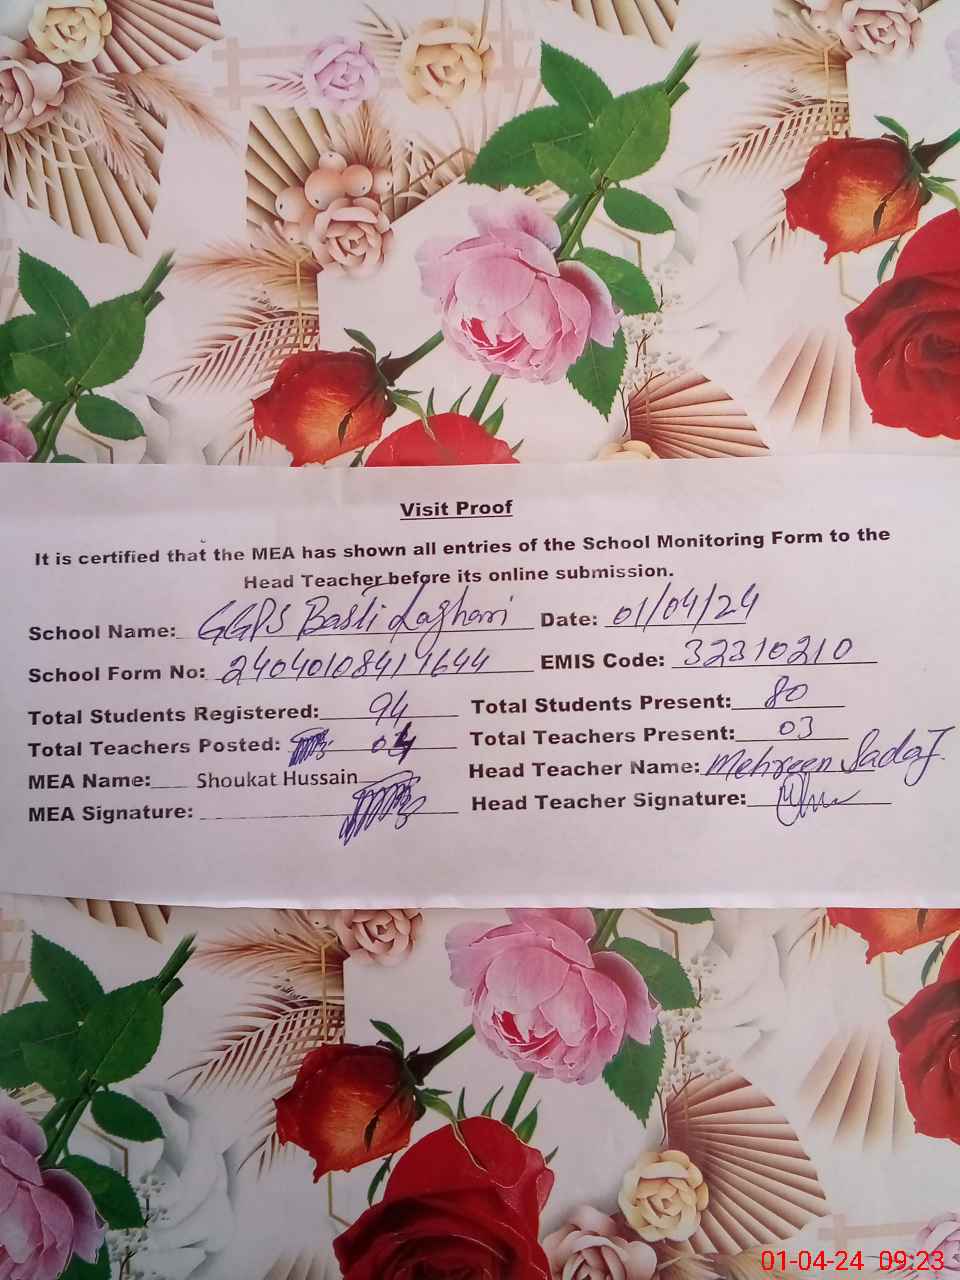 Visit Proof
It is certified that the MEA has shown all entries of the School Monitoring Form to the
Head Teacher before its online submission.
School Name: GGPS Basti Laghari Date: 01/04/24
School Form No: 24040108411644 EMIS Code: 32310210
Total Students Registered: 94 Total Students Present: 80
Total Teachers Posted: 04 Total Teachers Present: 03
MEA Name: Shoukat Hussain Head Teacher Name: Mehreen Sadaf.
MEA Signature: Head Teacher Signature:
01-04-24 09:23